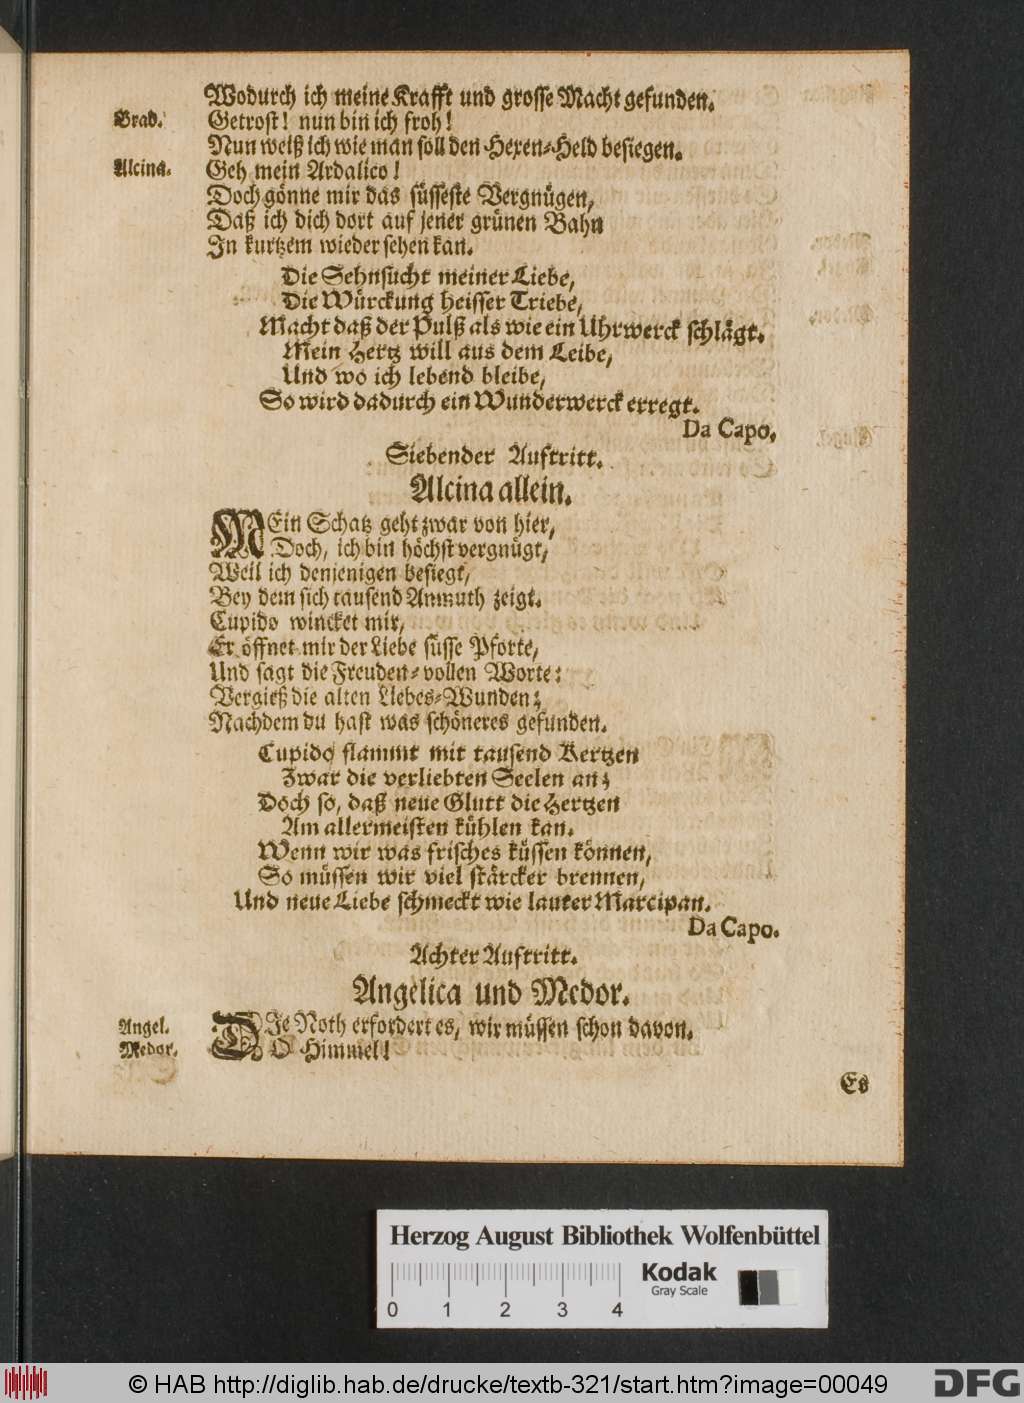 Wodurch ich meine Krafft und grosse Macht gefunden.
Brad. Getrost! nun bin ich froh!
Nun weiß ich wie man soll den Hexen-Held besiegen.
Alcina. Geh mein Ardalico!
Doch gönne mir das süsseste Vergnügen,
Daß ich dich dort auf jener grünen Bahn
In kurtzem wieder sehen kan.
Die Sehnsucht meiner Liebe,
Die Würckung heisser Triebe,
Macht daß der Pulß als wie ein Uhrwerck schlägt.
Mein Hertz will aus dem Leibe,
Und wo ich lebend bleibe,
So wird dadurch ein Wunderwerck erregt.
Da Capo.
Siebender Auftritt.
Alcina allein.
MEin Schatz geht zwar von hier,
Doch, ich bin höchst vergnügt,
Weil ich denjenigen besiegt,
Bey dem sich tausend Anmuth zeigt.
Cupido wincket mir,
Er öffnet mir der Liebe süsse Pforte,
Und sagt die Freuden-vollen Worte:
Vergieß die alten Liebes-Wunden;
Nachdem du hast was schöneres gefunden.
Cupido flammt mit tausend Kertzen
Zwar die verliebten Seelen an;
Doch so, daß neue Glutt die Hertzen
Am allermeisten kühlen kan.
Wenn wir was frisches küssen können,
So müssen wir viel stärcker brennen,
Und neue Liebe schmeckt wie lauter Marcipan.
Da Capo.
Achter Auftritt.
Angelica und Medor.
Angel. DIe Noth erfordert es, wir müssen schon davon.
Medor. O Himmel!
Es
Herzog August Bibliothek Wolfenbüttel
Kodak
Gray Scale
0 1 2 3 4
© HAB http://diglib.hab.de/drucke/textb-321/start.htm?image=00049
DFG